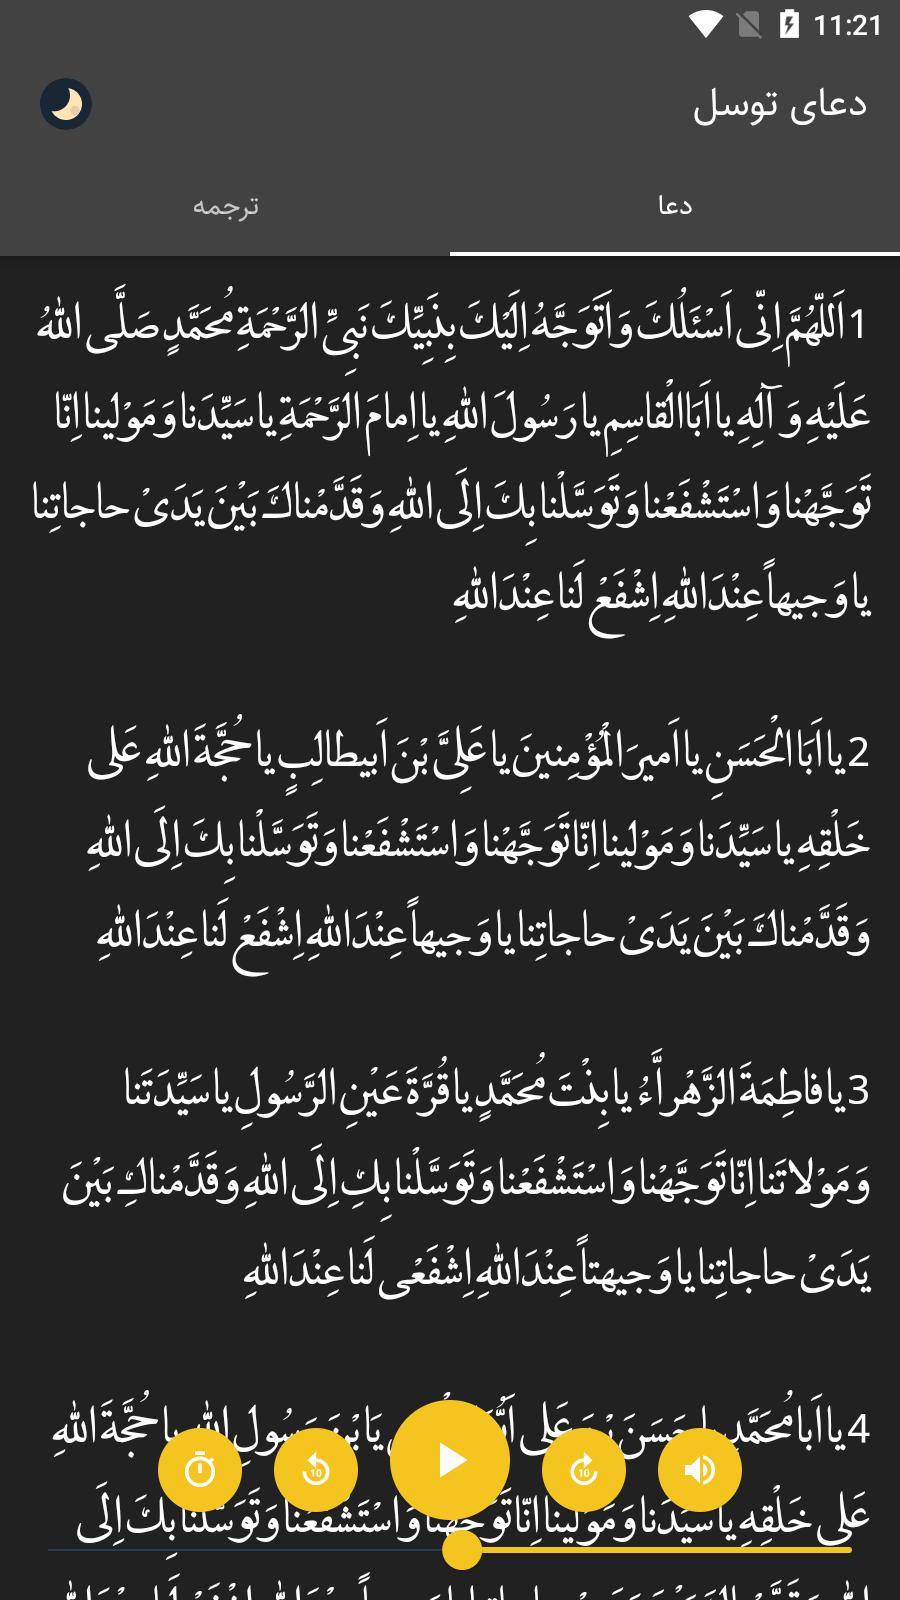 11:21
دعای توسل
دعا
ترجمه
1 اَللّهُمَّ اِنّى اَسْئَلُكَ وَ اَتَوَجَّهُ اِلَيْكَ بِنَبِيِّكَ نَبِىِّ الرَّحْمَةِ مُحَمَّدٍ صَلَّى اللهُ
عَلَيْهِ وَ آلِهِ يا اَبَاالْقاسِمِ يا رَسُولَ اللهِ يا اِمامَ الرَّحْمَةِ يا سَيِّدَنا وَ مَوْلينا اِنّا
تَوَجَّهْنا وَاسْتَشْفَعْنا وَ تَوَسَّلْنا بِكَ اِلَى اللهِ وَ قَدَّمْناكَ بَيْنَ يَدَىْ حاجاتِنا
يا وَجيهاً عِنْدَاللهِ اِشْفَعْ لَنا عِنْدَاللهِ
2 يا اَبَاالْحَسَنِ يا اَميرَالْمُؤْمِنينَ يا عَلِىَّ بْنَ اَبيطالِبٍ يا حُجَّةَ اللهِ عَلى
خَلْقِهِ يا سَيِّدَنا وَ مَوْلينا اِنّا تَوَجَّهْنا وَاسْتَشْفَعْنا وَ تَوَسَّلْنا بِكَ اِلَى اللهِ
وَ قَدَّمْناكَ بَيْنَ يَدَىْ حاجاتِنا يا وَجيهاً عِنْدَاللهِ اِشْفَعْ لَنا عِنْدَاللهِ
3 يا فاطِمَةَ الزَّهْراَّءُ يا بِنْتَ مُحَمَّدٍ يا قُرَّةَ عَيْنِ الرَّسُولِ يا سَيِّدَتَنا
وَ مَوْلاتَنا اِنّا تَوَجَّهْنا وَاسْتَشْفَعْنا وَ تَوَسَّلْنا بِكِ اِلَى اللهِ وَ قَدَّمْناكِ بَيْنَ
يَدَىْ حاجاتِنا يا وَجيهتاً عِنْدَاللهِ اِشْفَعْى لَنا عِنْدَاللهِ
4 يا اَبا مُحَمَّدٍ يا حَسَنَ بْنَ عَلِى يَابْنَ رَسُولِ اللهِ يا حُجَّةَ اللهِ
10 10
عَلى خَلْقِهِ يا سَيِّدَنا وَ مَوْلينا اِنّا تَوَجَّهْنا وَاسْتَشْفَعْنا وَ تَوَسَّلْنا بِكَ اِلَى